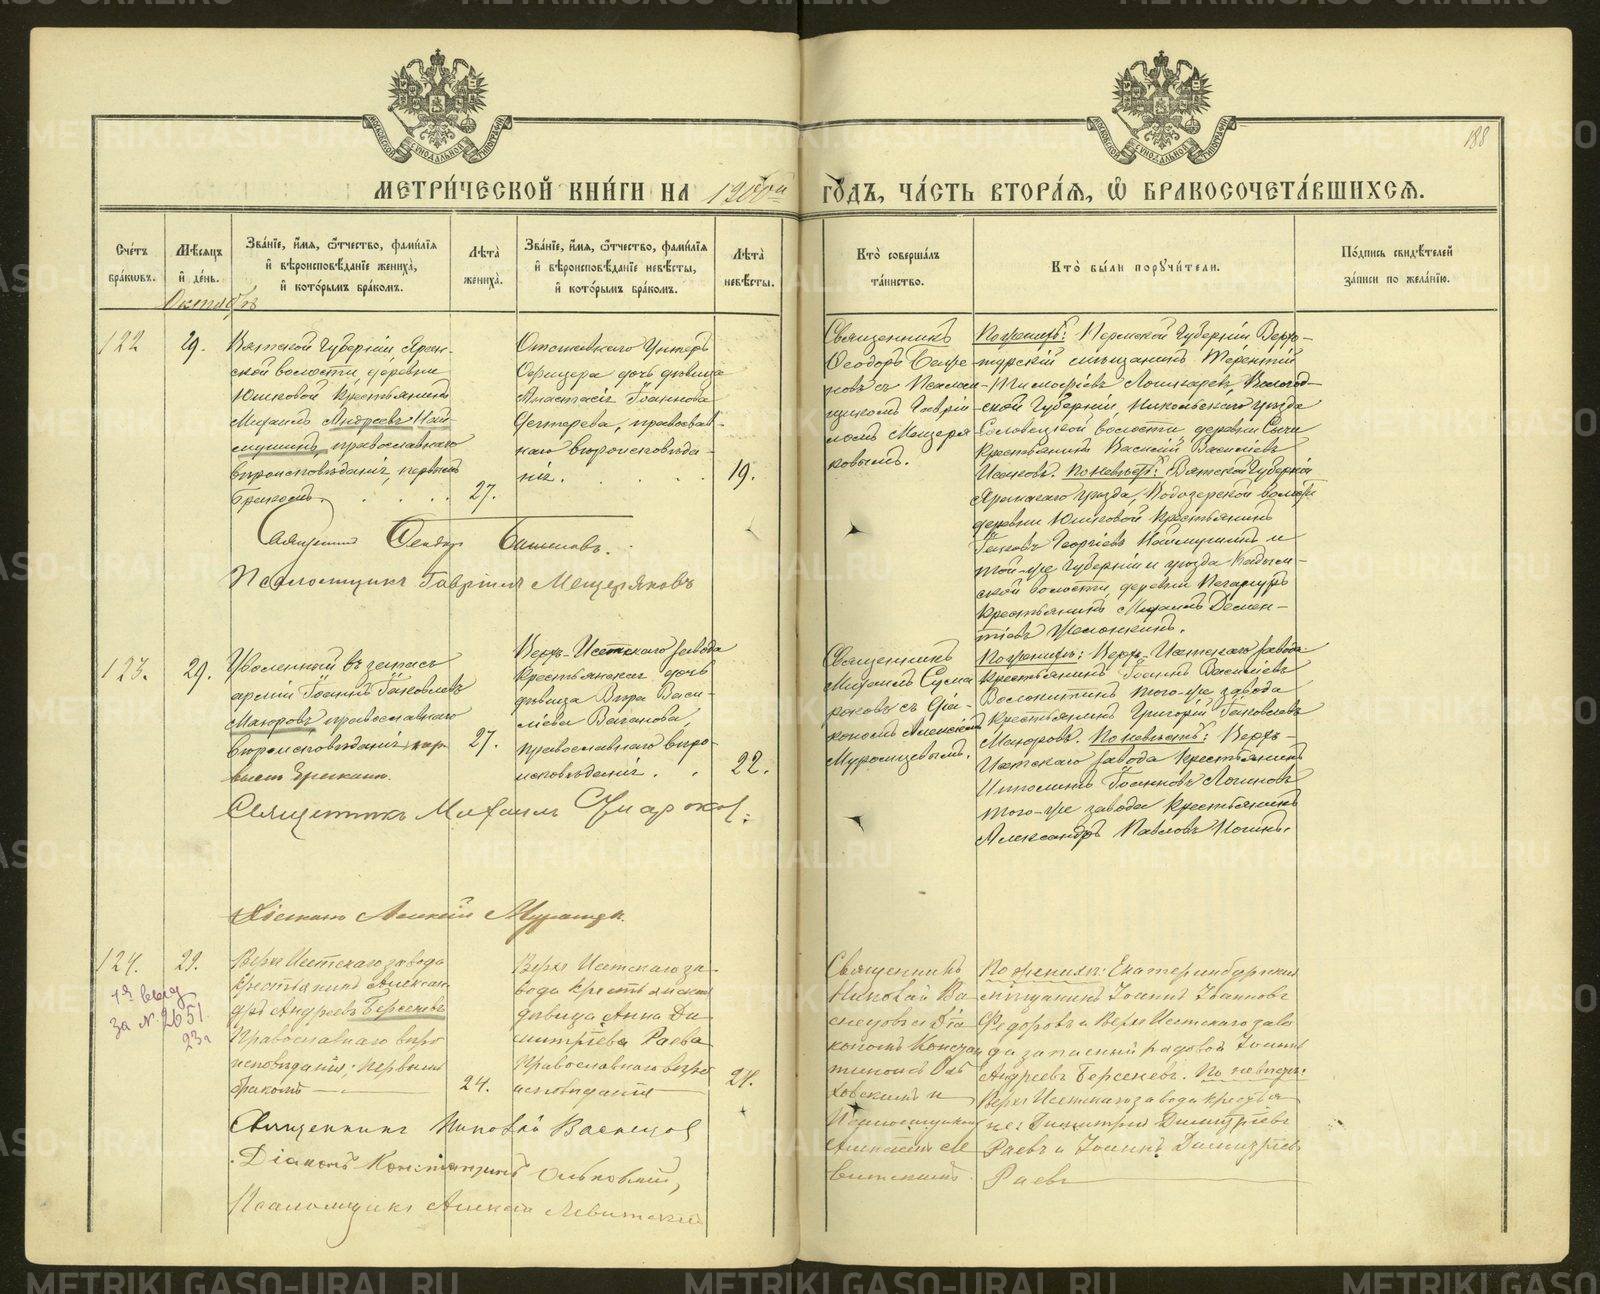 188
МЕТРИ́ЧЕСКОЙ КНИ́ГИ НА 1900ый ГО́ДЪ, ЧА́СТЬ ВТОРА́Я, Ѽ БРАКОСОЧЕТА́ВШИХСЯ.
Сче́тъ бра́кѡвъ.
Мѣ́сяцъ и҆ де́нь.
Зва́нїе, и҆́мя, ѻ҆́тчество, фамѝлїя и҆ вѣроисповѣ́данїе жениха̀, и҆ кото́рымъ бра́комъ.
Лѣта̀ жениха̀.
Зва́нїе, и҆́мя, ѻ҆́тчество, фамѝлїя и҆ вѣроисповѣ́данїе невѣ́сты, и҆ кото́рымъ бра́комъ.
Лѣта̀ невѣ́сты.
Кто̀ соверша́лъ та́инство.
Кто̀ бы́ли поручи́тели.
По́дпись свидѣ́телей за́писи по жела́нїю.
Октябрь
122
29.
Вятской Губерніи, Яран-
ской волости, деревни
Юшковой Крестьянинъ
Михаилъ Андреевъ Най-
мушинъ, православнаго
вѣроисповѣданія, первымъ
бракомъ.
27.
Отставнаго Унтеръ
Офицера дочь дѣвица
Анастасія Іоаннова
православ-
наго вѣроисповѣда-
нія.
19.
Священникъ
Ѳеодоръ
новъ съ Псалом-
щикомъ Гаврі-
ломъ Мещеря-
ковымъ.
По женихѣ: Пермской Губерніи Верхо-
турскій мѣщанинъ Терентій
Тимофѣевъ Вологод-
ской Губерніи, Никольскаго уѣзда
волости, деревни
Крестьянинъ Василій Васильевъ
Исаковъ. По невѣстѣ: Вятской Губерніи
Яранскаго уѣзда, волости
деревни Юшковой Крестьянинъ
Іаковъ Георгіевъ Наймушинъ и
той-же Губерніи и уѣзда
ской волости, деревни
Крестьянинъ Михаилъ Демен-
тіевъ
Священникъ Ѳеодоръ
Псаломщикъ Гавріилъ Мещеряковъ
123.
29.
Уволенный въ запасъ
арміи Іоаннъ Іаковлевъ
Макаровъ православнаго
вѣроисповѣданія, пер-
вымъ бракомъ.
27.
Верхъ-Исетскаго завода
Крестьянская дочь
дѣвица Вѣра Васи-
ліева Ваганова,
православнаго вѣро-
исповѣданія.
22.
Священникъ
Михаилъ Сума
роковъ съ Діа-
кономъ Алексіемъ
Муромцевымъ.
По женихѣ: Верхъ-Исетскаго завода
Крестьянинъ Іоаннъ Васильевъ
того-же завода
Крестьянинъ Григорій Іаковлевъ
Макаровъ. По невѣстѣ: Верхъ-
Исетскаго завода Крестьянинъ
Ипполитъ Іоанновъ Логиновъ
того-же завода Крестьянинъ
Александръ Павловъ
Священникъ Михаилъ Сумароковъ.
Діаконъ Алексій Муромцевъ.
124.
29.
1-я выд
за № 2651
23 г
Верхъ Исетскаго завода
Крестьянинъ Алексан
дръ Андреевъ Берсеневъ
Православнаго вѣро
исповѣданія, первымъ
бракомъ
24.
Верхъ Исетскаго за-
вода крестьянская
дѣвица Анна Ди
митріева Раева
Православнаго вѣро
исповѣданія
21.
Священникъ
Николай Ва
снецовъ и Діа
конъ Констан
тинъ Оль
ховскимъ и
Псаломщикомъ
Алексіемъ Ле
витскимъ.
По женихѣ: Екатеринбургскій
мѣщанинъ Іоаннъ Ивановъ
Федоровъ и Верхъ Исетскаго заво
да запасный рядовой Іоаннъ
Андреевъ Берсеневъ. По невѣстѣ:
Верхъ Исетскаго завода крестья
не: Димитрій Димитріевъ
Раевъ и Іоаннъ Димитріевъ
Раевъ
Священникъ Николай Васнецовъ
Діаконъ Константинъ Ольховскій,
Псаломщикъ Алексій Левитскій
METRIKI.GASO-URAL.RU